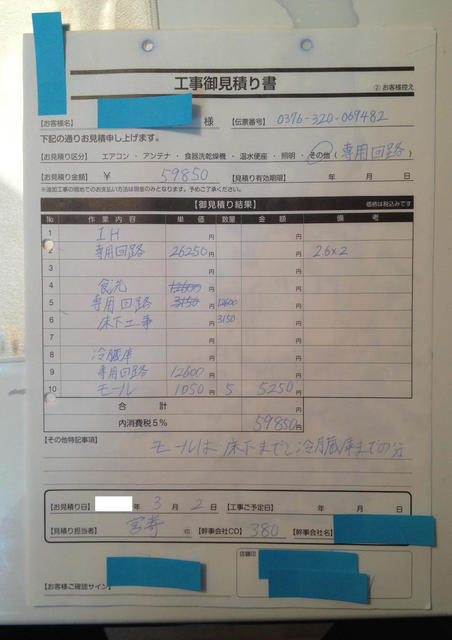 工事御見積り書
② お客様控え
【お客様名】 様 【伝票番号】 0376-320-069482
下記の通りお見積申し上げます。
【お見積り区分】 エアコン ・ アンテナ ・ 食器洗乾燥機 ・ 温水便座 ・ 照明 ・ その他 ( 専用回路 )
【お見積り金額】 ¥ 59850 【見積り有効期限】 年 月 日
※追加工事の現地でのお支払い方法は現金のみとなります。予めご了承ください。
【御見積り結果】 価格は税込みです
No 作業内容 単価 数量 金額 備考
1 IH 円 円
2 専用回路 26250円 円 2.6×2
3 円 円
4 食洗 12600円 円
5 専用回路 3150円 12600 円
6 床下工事 円 3150 円
7 円 円
8 冷蔵庫 円 円
9 専用回路 12600円 円
10 モール 1050円 5 5250円
合計 円
内消費税5% 59850円
【その他特記事項】 モールは床下までと冷蔵庫までの分
【お見積り日】 年 3 月 2 日 【工事ご予定日】 年 月 日
【見積り担当者】 印 【幹事会社CD】 380 【幹事会社名】
【お客様ご確認サイン】
店舗印